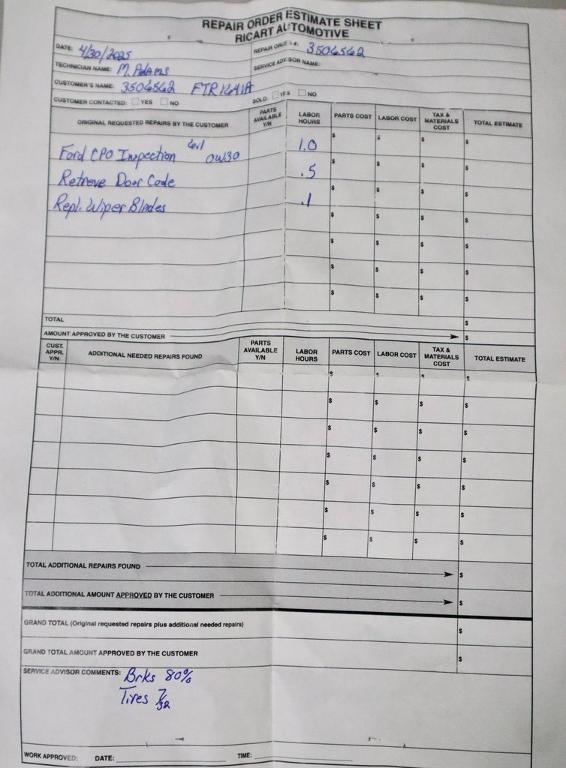 REPAIR ORDER ESTIMATE SHEET
RICART AUTOMOTIVE
DATE: 4/30/2025 REPAIR ORDER #: 3506562
TECHNICIAN NAME: M. Adams SERVICE ADVISOR NAME:
CUSTOMER'S NAME: 3506562 FTR1641A
CUSTOMER CONTACTED: YES NO SOLD: YES NO
ORIGINAL REQUESTED REPAIRS BY THE CUSTOMER PARTS AVAILABLE Y/N LABOR HOURS PARTS COST LABOR COST TAX & MATERIALS COST TOTAL ESTIMATE
$ $ $ $
Ford CPO Inspection 0W30 1.0 $ $ $ $
Retreve Door Code .5 $ $ $ $
Repl. Wiper Blades .1 $ $ $ $
$ $ $ $
$ $ $ $
$ $ $ $
TOTAL $
AMOUNT APPROVED BY THE CUSTOMER $
CUST. APPR. Y/N ADDITIONAL NEEDED REPAIRS FOUND PARTS AVAILABLE Y/N LABOR HOURS PARTS COST LABOR COST TAX & MATERIALS COST TOTAL ESTIMATE
$ $ $ $
$ $ $ $
$ $ $ $
$ $ $ $
$ $ $ $
$ $ $ $
$ $ $ $
TOTAL ADDITIONAL REPAIRS FOUND $
TOTAL ADDITIONAL AMOUNT APPROVED BY THE CUSTOMER $
GRAND TOTAL (Original requested repairs plus additional needed repairs) $
GRAND TOTAL AMOUNT APPROVED BY THE CUSTOMER $
SERVICE ADVISOR COMMENTS: Brks 80%
Tires 7/32
WORK APPROVED: DATE: TIME: